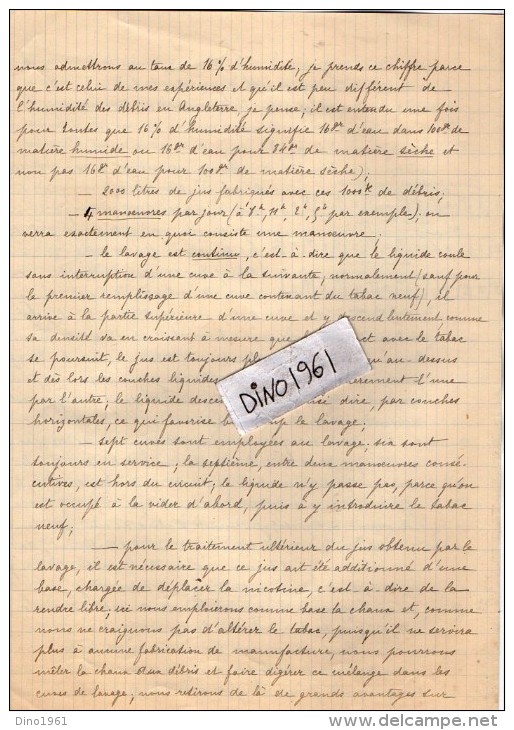 nous admettrons au taux de 16% d'humidité, je prends ce chiffre parce
que c'est celui de mes expériences et qu'il est peu différent de
l'humidité des débris en Angleterre, je pense; il est entendu une fois
pour toutes que 16% d'humidité signifie 16gr d'eau dans 100gr de
matière humide ou 16gr d'eau pour 84gr de matière sèche et
non pas 16gr d'eau pour 100gr de matière sèche);
— 2000 litres de jus fabriqués avec ces 1000k de débris;
— 4 manœuvres par jour (à 8h, 11h, 2h, 5h par exemple); on
verra exactement en quoi consiste une manœuvre.
— le lavage est continu, c'est-à-dire que le liquide coule
sans interruption d'une cuve à la suivante; normalement (sauf pour
le premier remplissage d'une cuve contenant du tabac neuf), il
arrive à la partie supérieure d'une cuve et y descend lentement comme
sa densité va en croissant à mesure que avec le tabac
se poursuit, le jus est toujours au-dessus
et dès lors les couches liquides l'une
par l'autre; le liquide dire, par couches
horizontales, ce qui favorise le lavage;
— sept cuves sont employées au lavage, six sont
toujours en service; la septième, entre deux manœuvres consé-
cutives, est hors du circuit; le liquide n'y passe pas, parce qu'on
est occupé à la vider d'abord, puis à y introduire le tabac
neuf;
— pour le traitement ultérieur du jus obtenu par le
lavage, il est nécessaire que ce jus ait été additionné d'une
base, chargée de déplacer la nicotine, c'est-à-dire de la
rendre libre; ici nous emploierons comme base la chaux et, comme
nous ne craignons pas d'altérer le tabac, puisqu'il ne servira
plus à aucune fabrication de manufacture, nous pourrons
mêler la chaux aux débris et faire digérer ce mélange dans les
cuves de lavage; nous retirons de là de grands avantages sur
DINO1961
Dino1961
www.delcampe.net